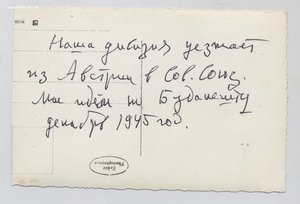 Наша дивизия уезжает
из Австрии в Сов. Союз.
Мы идём по Будапешту
декабрь 1945 год.